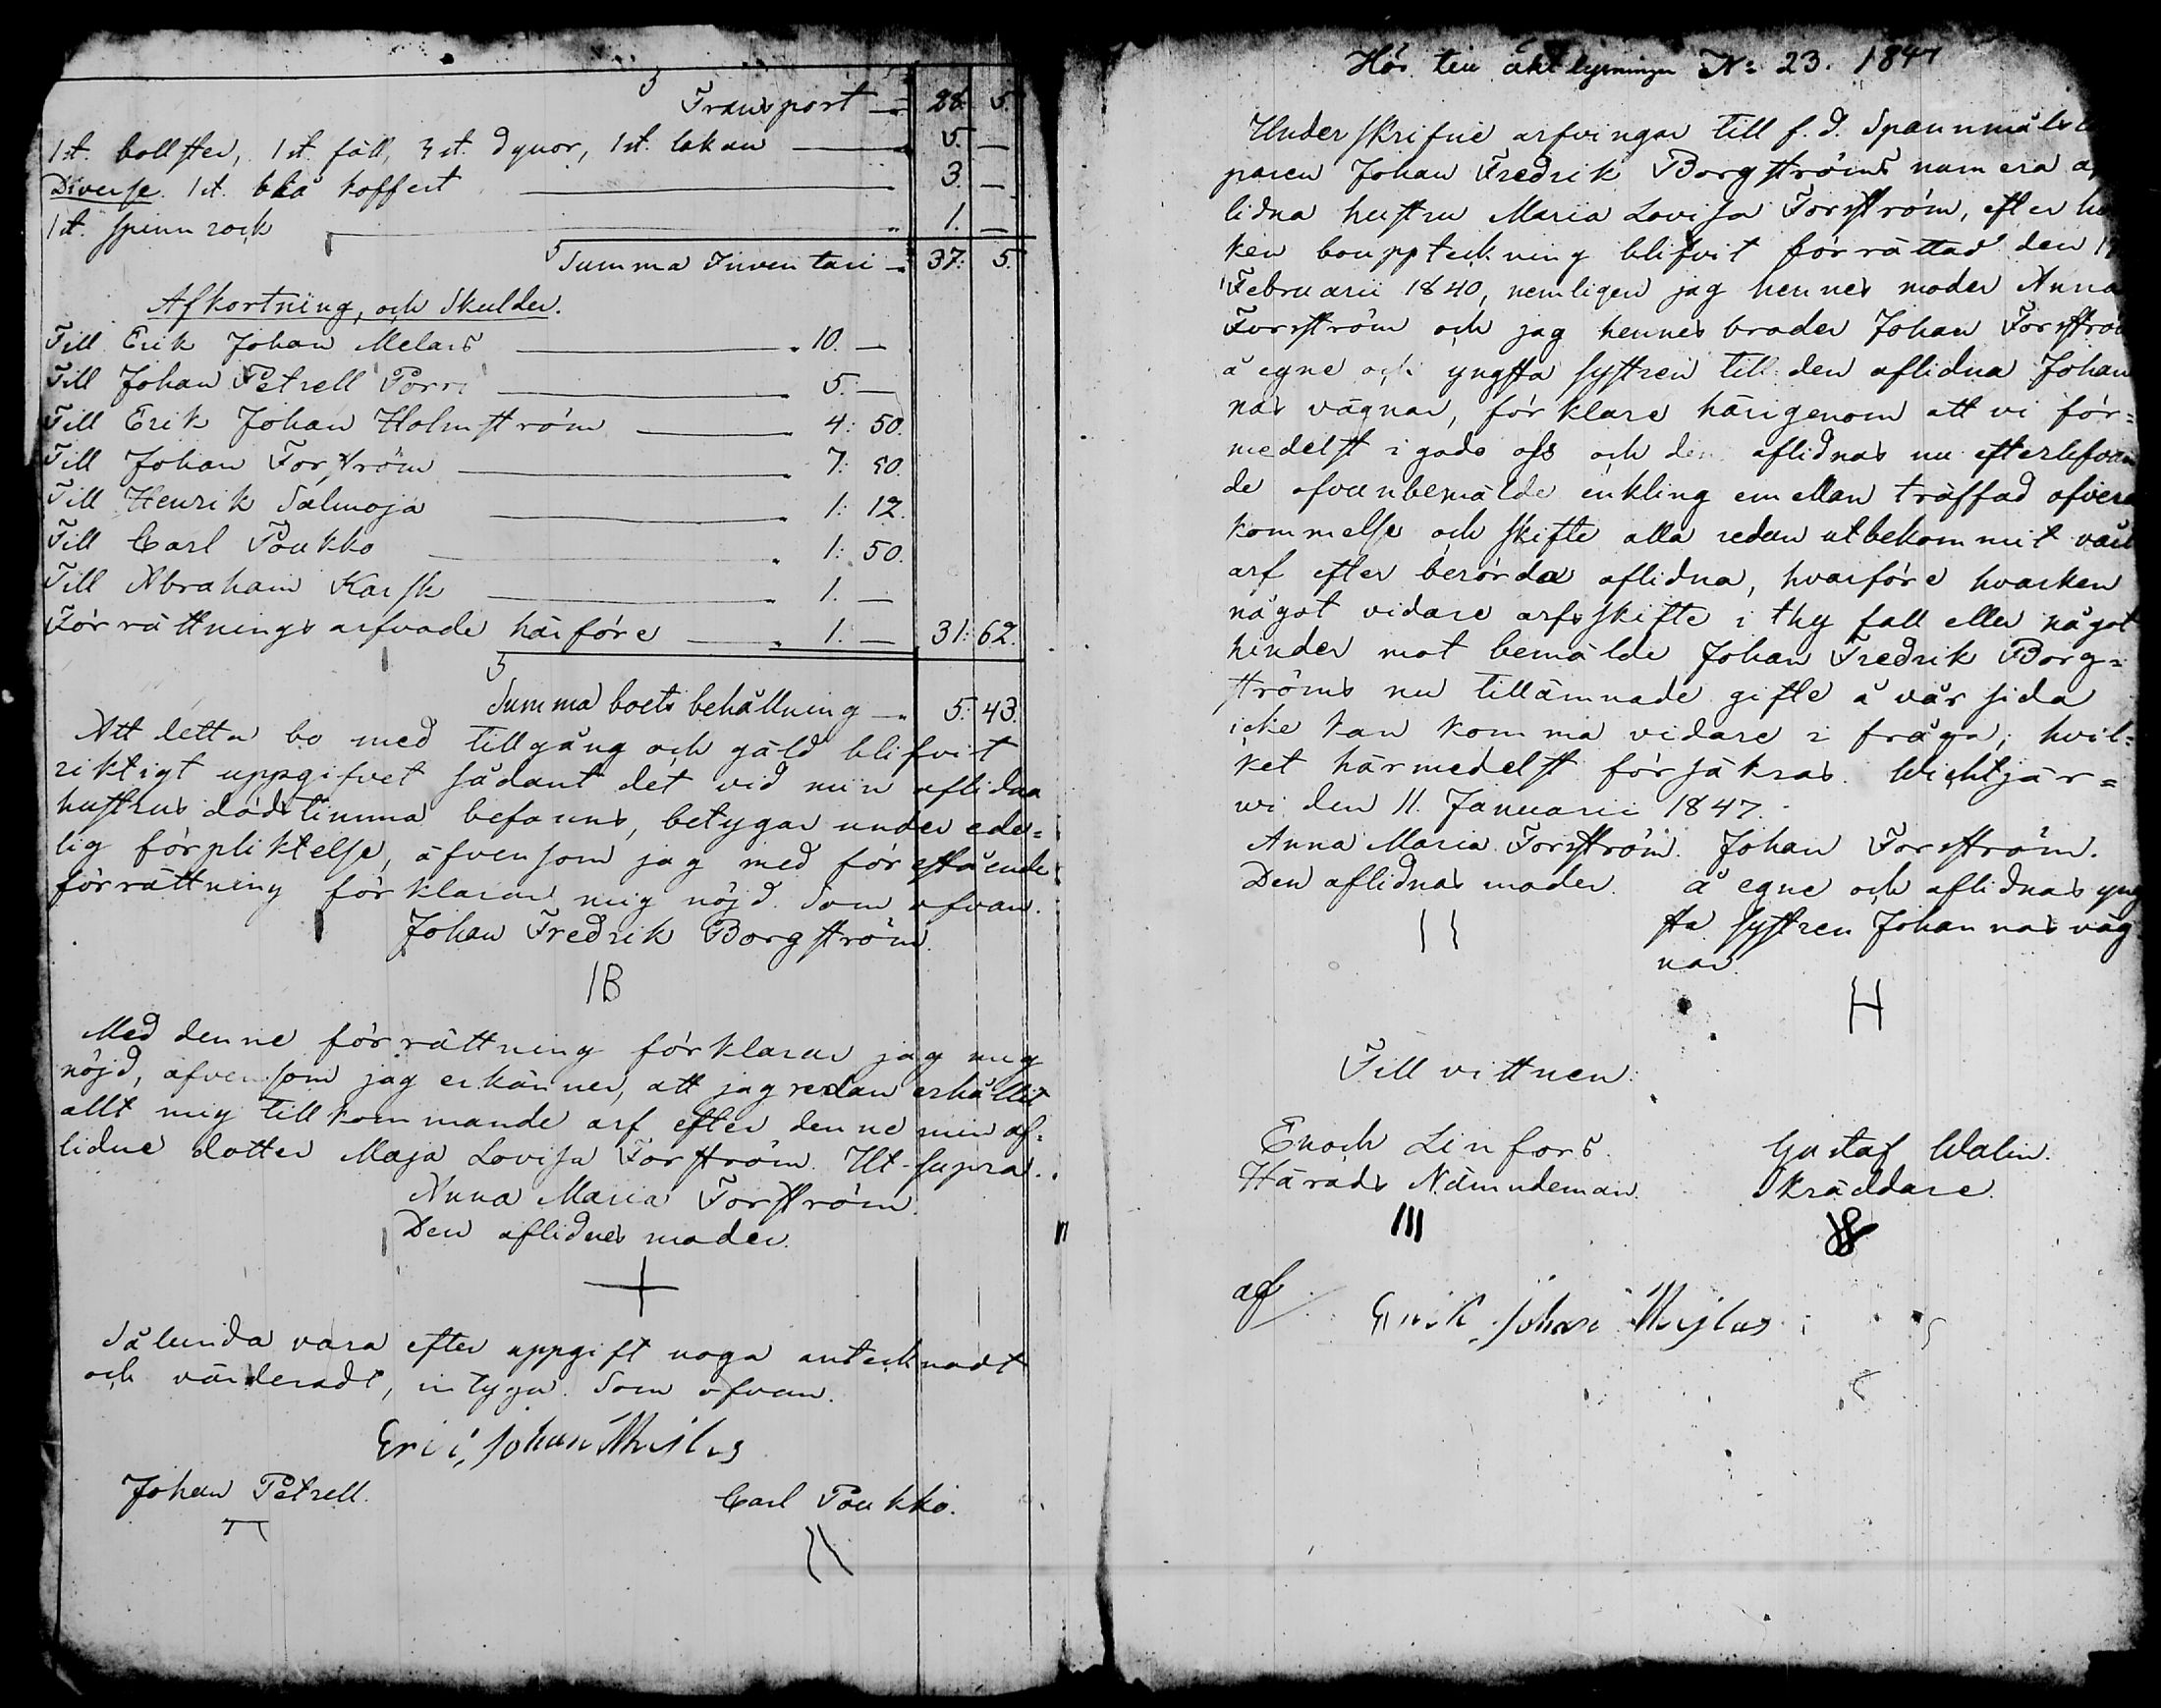 Transport — 28. 5.
1 st. bollster, 1 st. fäll, 3 st. dynor, 1 st. lakan — 5. —
Diverse. 1 st. blå koffert — 3. —
1 st. spinnrock — 1. —
Summa Inventari — 37: 5.
Afkortning, och Skulder.
Till Erik Johan Melars — 10. —
Till Johan Petrell Porri — 5. —
Till Erik Johan Holmström — 4: 50.
Till Johan Forström — 7: 50.
Till Henrik Salmoja — 1: 12.
Till Carl Poukko — 1: 50.
Till Abraham Karsk — 1. —
Förrättnings arfvode härföre — 1: — 31: 62.
Summa boets behållning — 5: 43.
Att detta bo med tillgång och gäld blifvit
riktigt uppgifvet sådant det vid min aflidna
hustrus dödstimma befanns, betygar under ede=
lig förpliktelse, äfvensom jag med förestående
förrättning förklarar mig nöjd. Som ofvan.
Johan Fredrik Borgström.
IB
Med denne förrättning förklarar jag mig
nöjd, äfvensom jag erkänner, att jag redan erhållit
allt mig tillkommande arf efter denne min af=
lidne dotter Maja Lovisa Forström. Ut supra.
Anna Maria Forström.
Den aflidnes moder.
Sålunda vara efter uppgift noga antecknadt
och värderadt, intyga. Som ofvan.
Johan
Johan Petrell. Carl Poukko.
Hör till äkt lysningen No 23. 1847
Underskrifne arfvingar till f. d. Spannmåls
paren Johan Fredrik Borgströms numera af
lidna hustru Maria Lovisa Forström, efter
ken bouppteckning blifvit förrättad den
Februarii 1840, nemligen jag hennes moder Anna
Forström och jag hennes broder Johan Forström
å egne och yngsta systren till den aflidna Johan
nas vägnar, förklare härigenom att vi för=
medelst i godo oss och den aflidnas nu efterlefvan
de ofvanbemälde enkling emellan träffad öfverens
kommelse och skifte alla redan utbekommit vårt
arf efter berörda aflidna, hvarföre hvarken
något vidare arfsskifte i thy fall eller något
hinder mot bemälde Johan Fredrik Borg=
ströms nu tillämnade gifte å vår sida
icke kan komma vidare i fråga; hvil=
ket härmedelst försäkras. Wichtjär=
wi den 11. Januarii 1847.
Anna Maria Forström. Johan Forström.
Den aflidnas moder. å egne och aflidnas yng
sta systren Johannas väg
nar.
H
Till vittnen:
Enoch Linfors. Gustaf Walin.
Härads Nämndeman. Skräddare.
af
Erik Johan